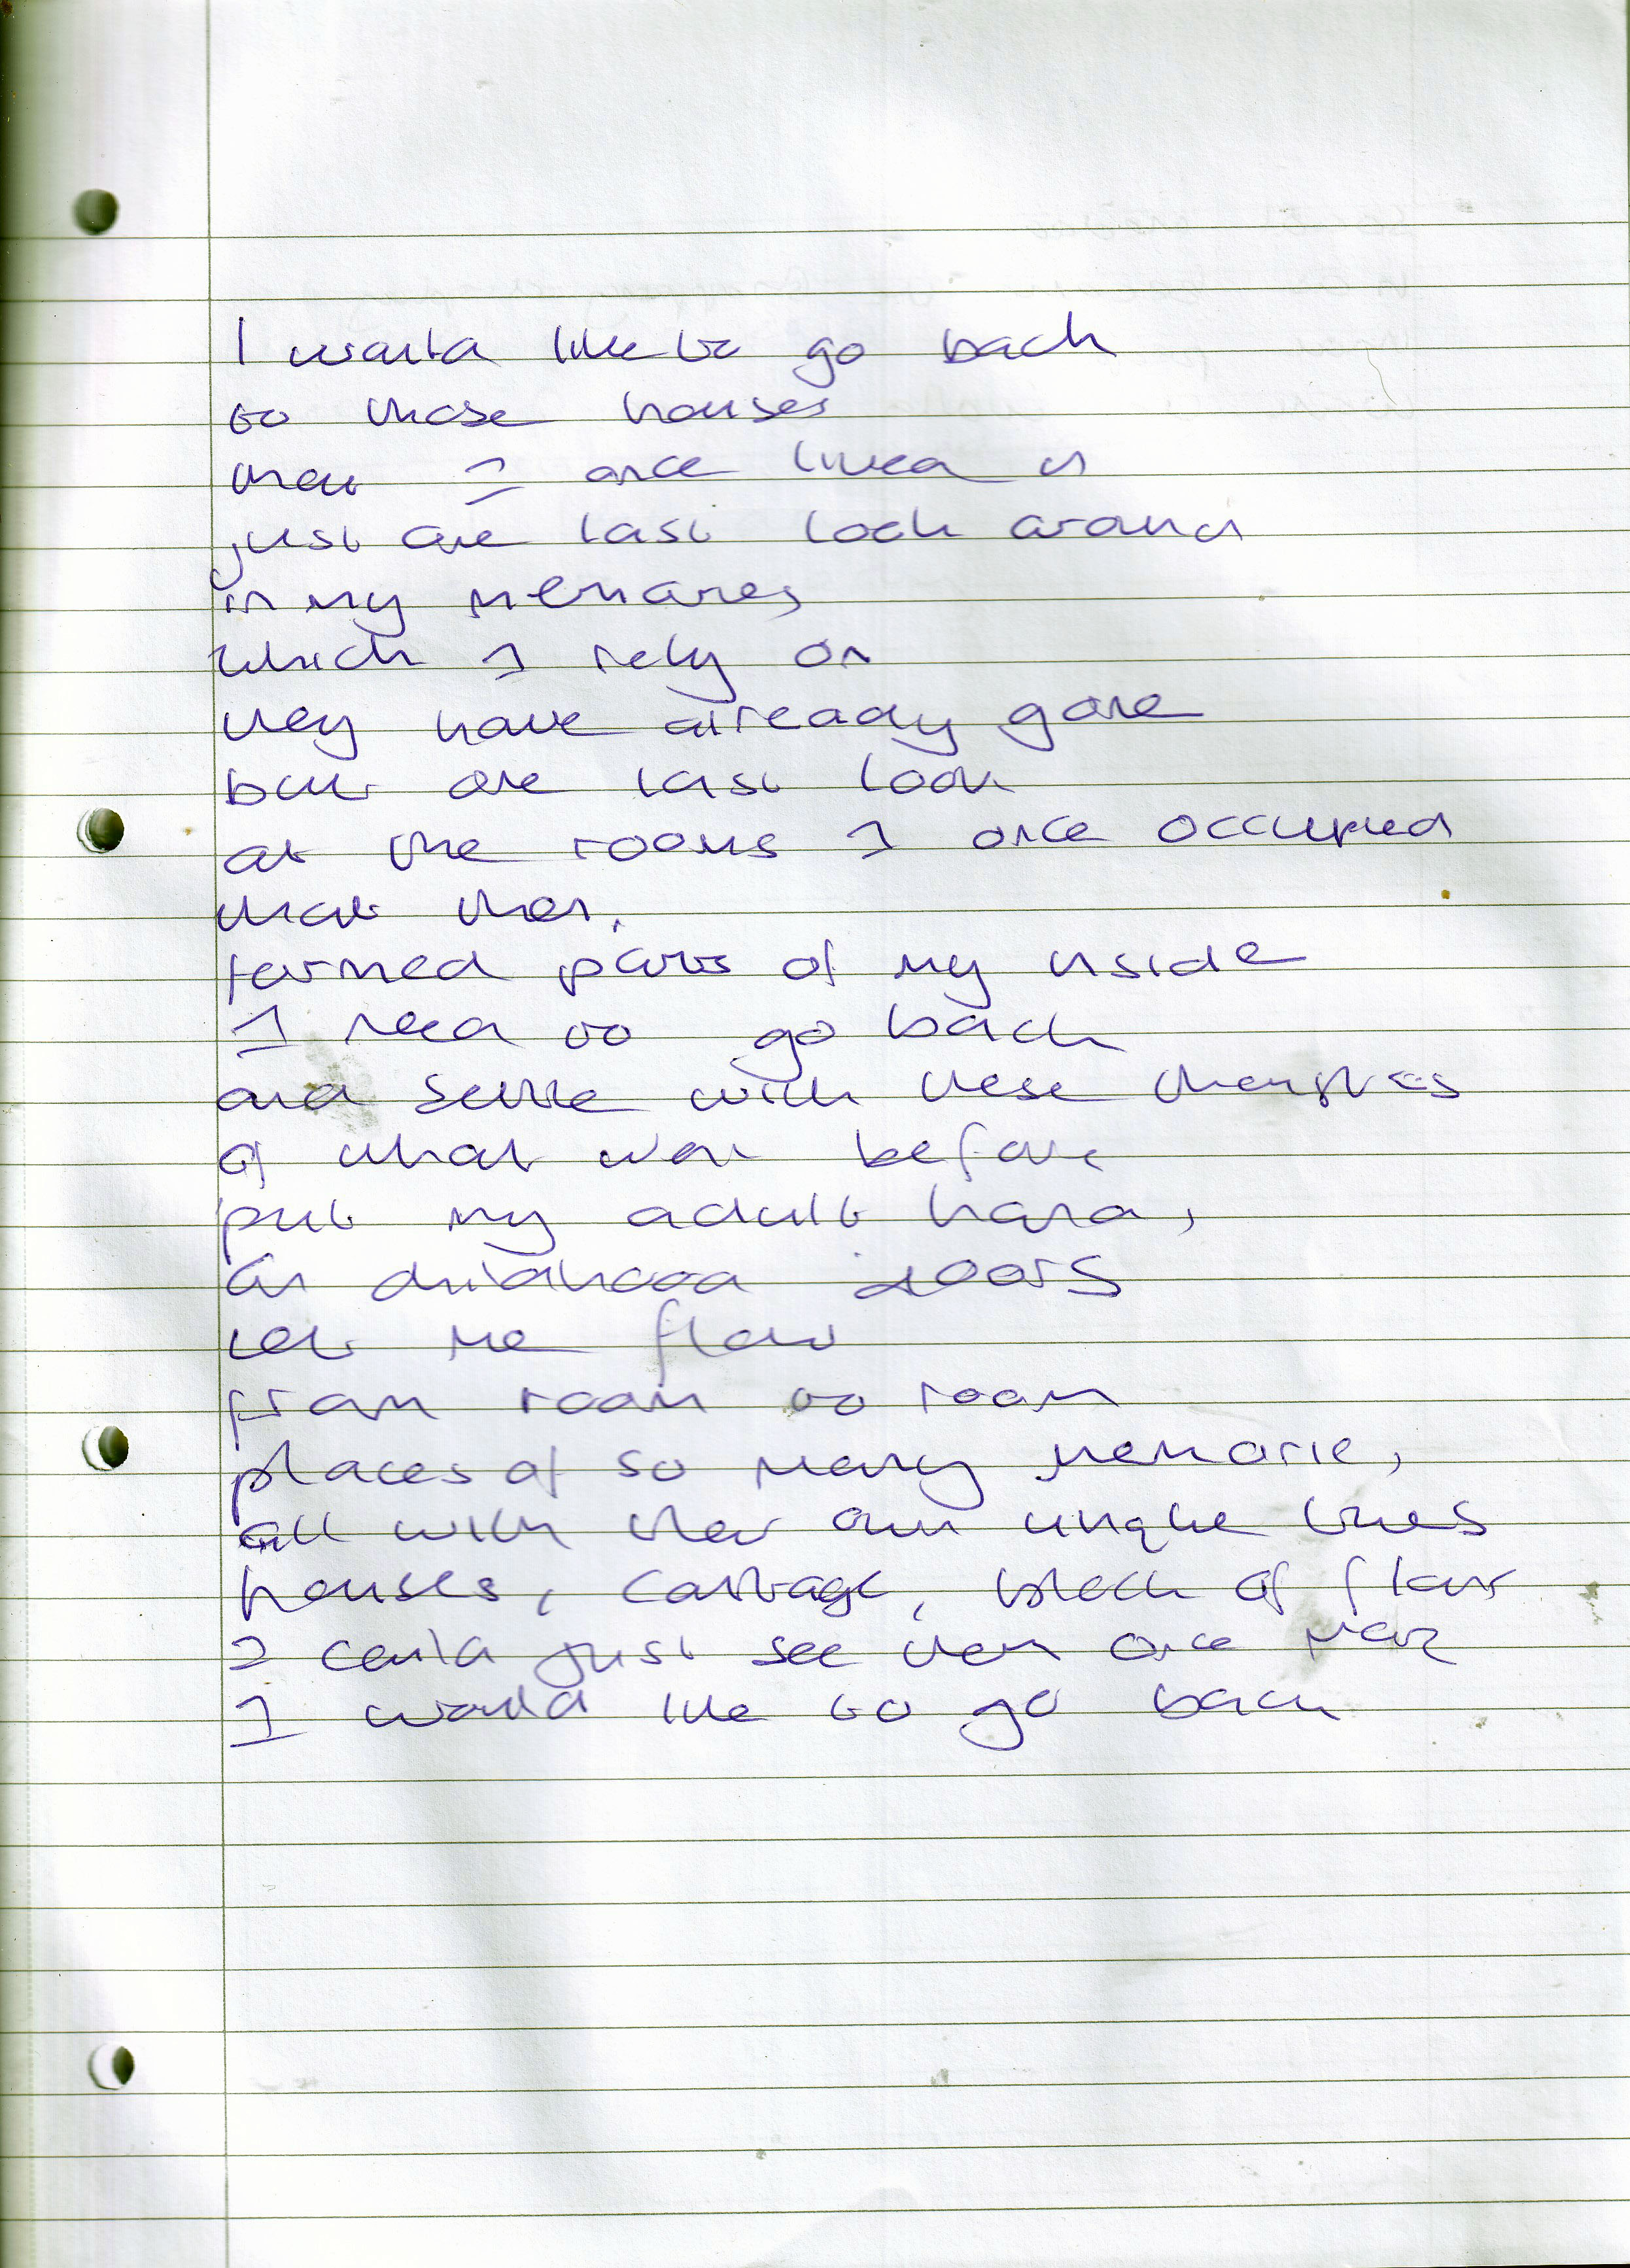 I would like to go back
to those houses
that I once lived in
just one last look around
in my memories
which I rely on
they have already gone
but one last look
at the rooms I once occupied
that then,
formed parts of my inside
I need to go back
and settle with these
of what went before
put my adult hands
on childhood doors
let me flow
from room to room
places of so many memories
all with their own unique lives
houses, cottage, block of flats
I could just see them once more
I would like to go back